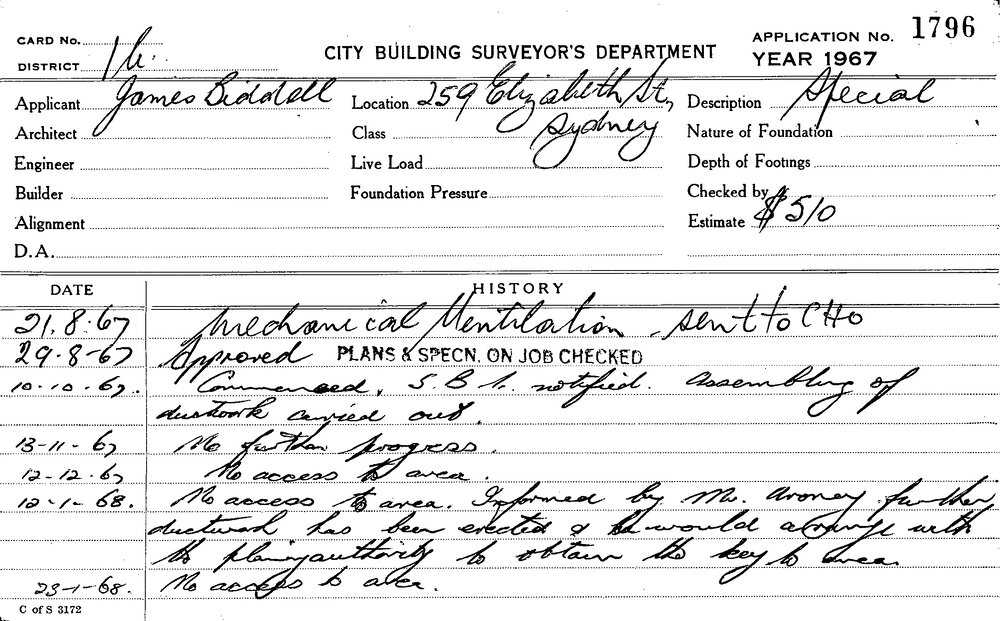 CARD No.
DISTRICT
CITY BUILDING SURVEYOR'S DEPARTMENT
APPLICATION No. 1796
YEAR 1967
Applicant James Biddell
Location 259 Elizabeth St, Sydney
Description Special
Architect
Class
Nature of Foundation
Engineer
Live Load
Depth of Footings
Builder
Foundation Pressure
Checked by
Alignment
Estimate $510
D.A.
DATE HISTORY
21.8.67 Mechanical Ventilation sent to CHO
29.8-67 Approved PLANS & SPECN. ON JOB CHECKED
10-10.67. Commenced, S.B.I. notified. Assembling of
ductwork carried out.
13-11-67 No further progress.
12-12.67 No access to area.
12-1-68. No access to area. Informed by Mr. Aroney further
ductwork has been erected & he would arrange with
the authority to obtain the key to area.
23-1-68. No access to area.
C of S 3172